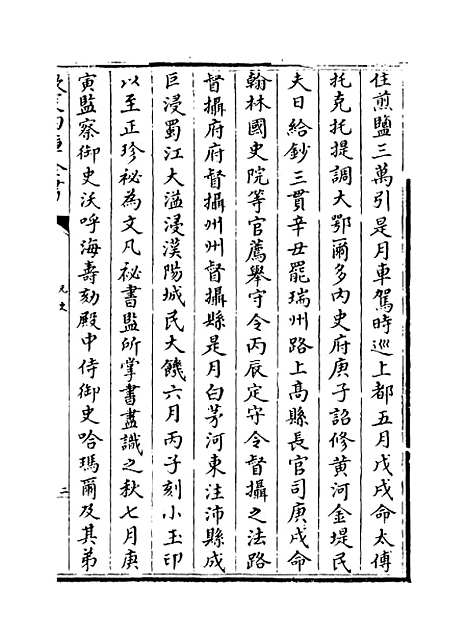 住煎鹽三萬引是月車駕時巡上都五月戊戌命太傅
托克托提調大鄂爾多内史府庚子詔修黃河金堤民
夫日給鈔三貫辛丑罷瑞州路上髙縣長官司庚戌命
翰林國史院等官薦舉守令丙辰定守令督攝之法路
督攝府府督攝州州督攝縣是月白茅河東注沛縣成
巨浸蜀江大溢浸漢陽城民大饑六月丙子刻小玉印
以至正珍祕為文凡祕書監所掌書畫識之秋七月庚
寅監察御史沃呼海壽劾殿中侍御史哈瑪爾及其弟
元史
二